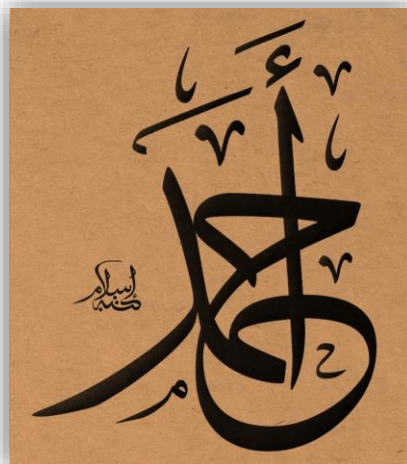 أحمد
كتبه إسلام